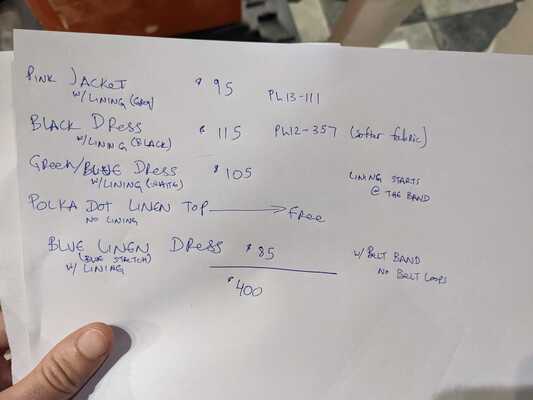 PINK JACKET $95 PL13-111
W/ LINING (GREY)
BLACK DRESS $115 PL12-357 (softer fabric)
W/ LINING (BLACK)
GREEN/BLUE DRESS $105 LINING STARTS
W/ LINING (WHITE) @ THE BAND
POLKA DOT LINEN TOP → FREE
NO LINING
BLUE LINEN DRESS $85 W/ BELT BAND
(BLUE STRETCH) NO BELT LOOPS
W/ LINING
$400